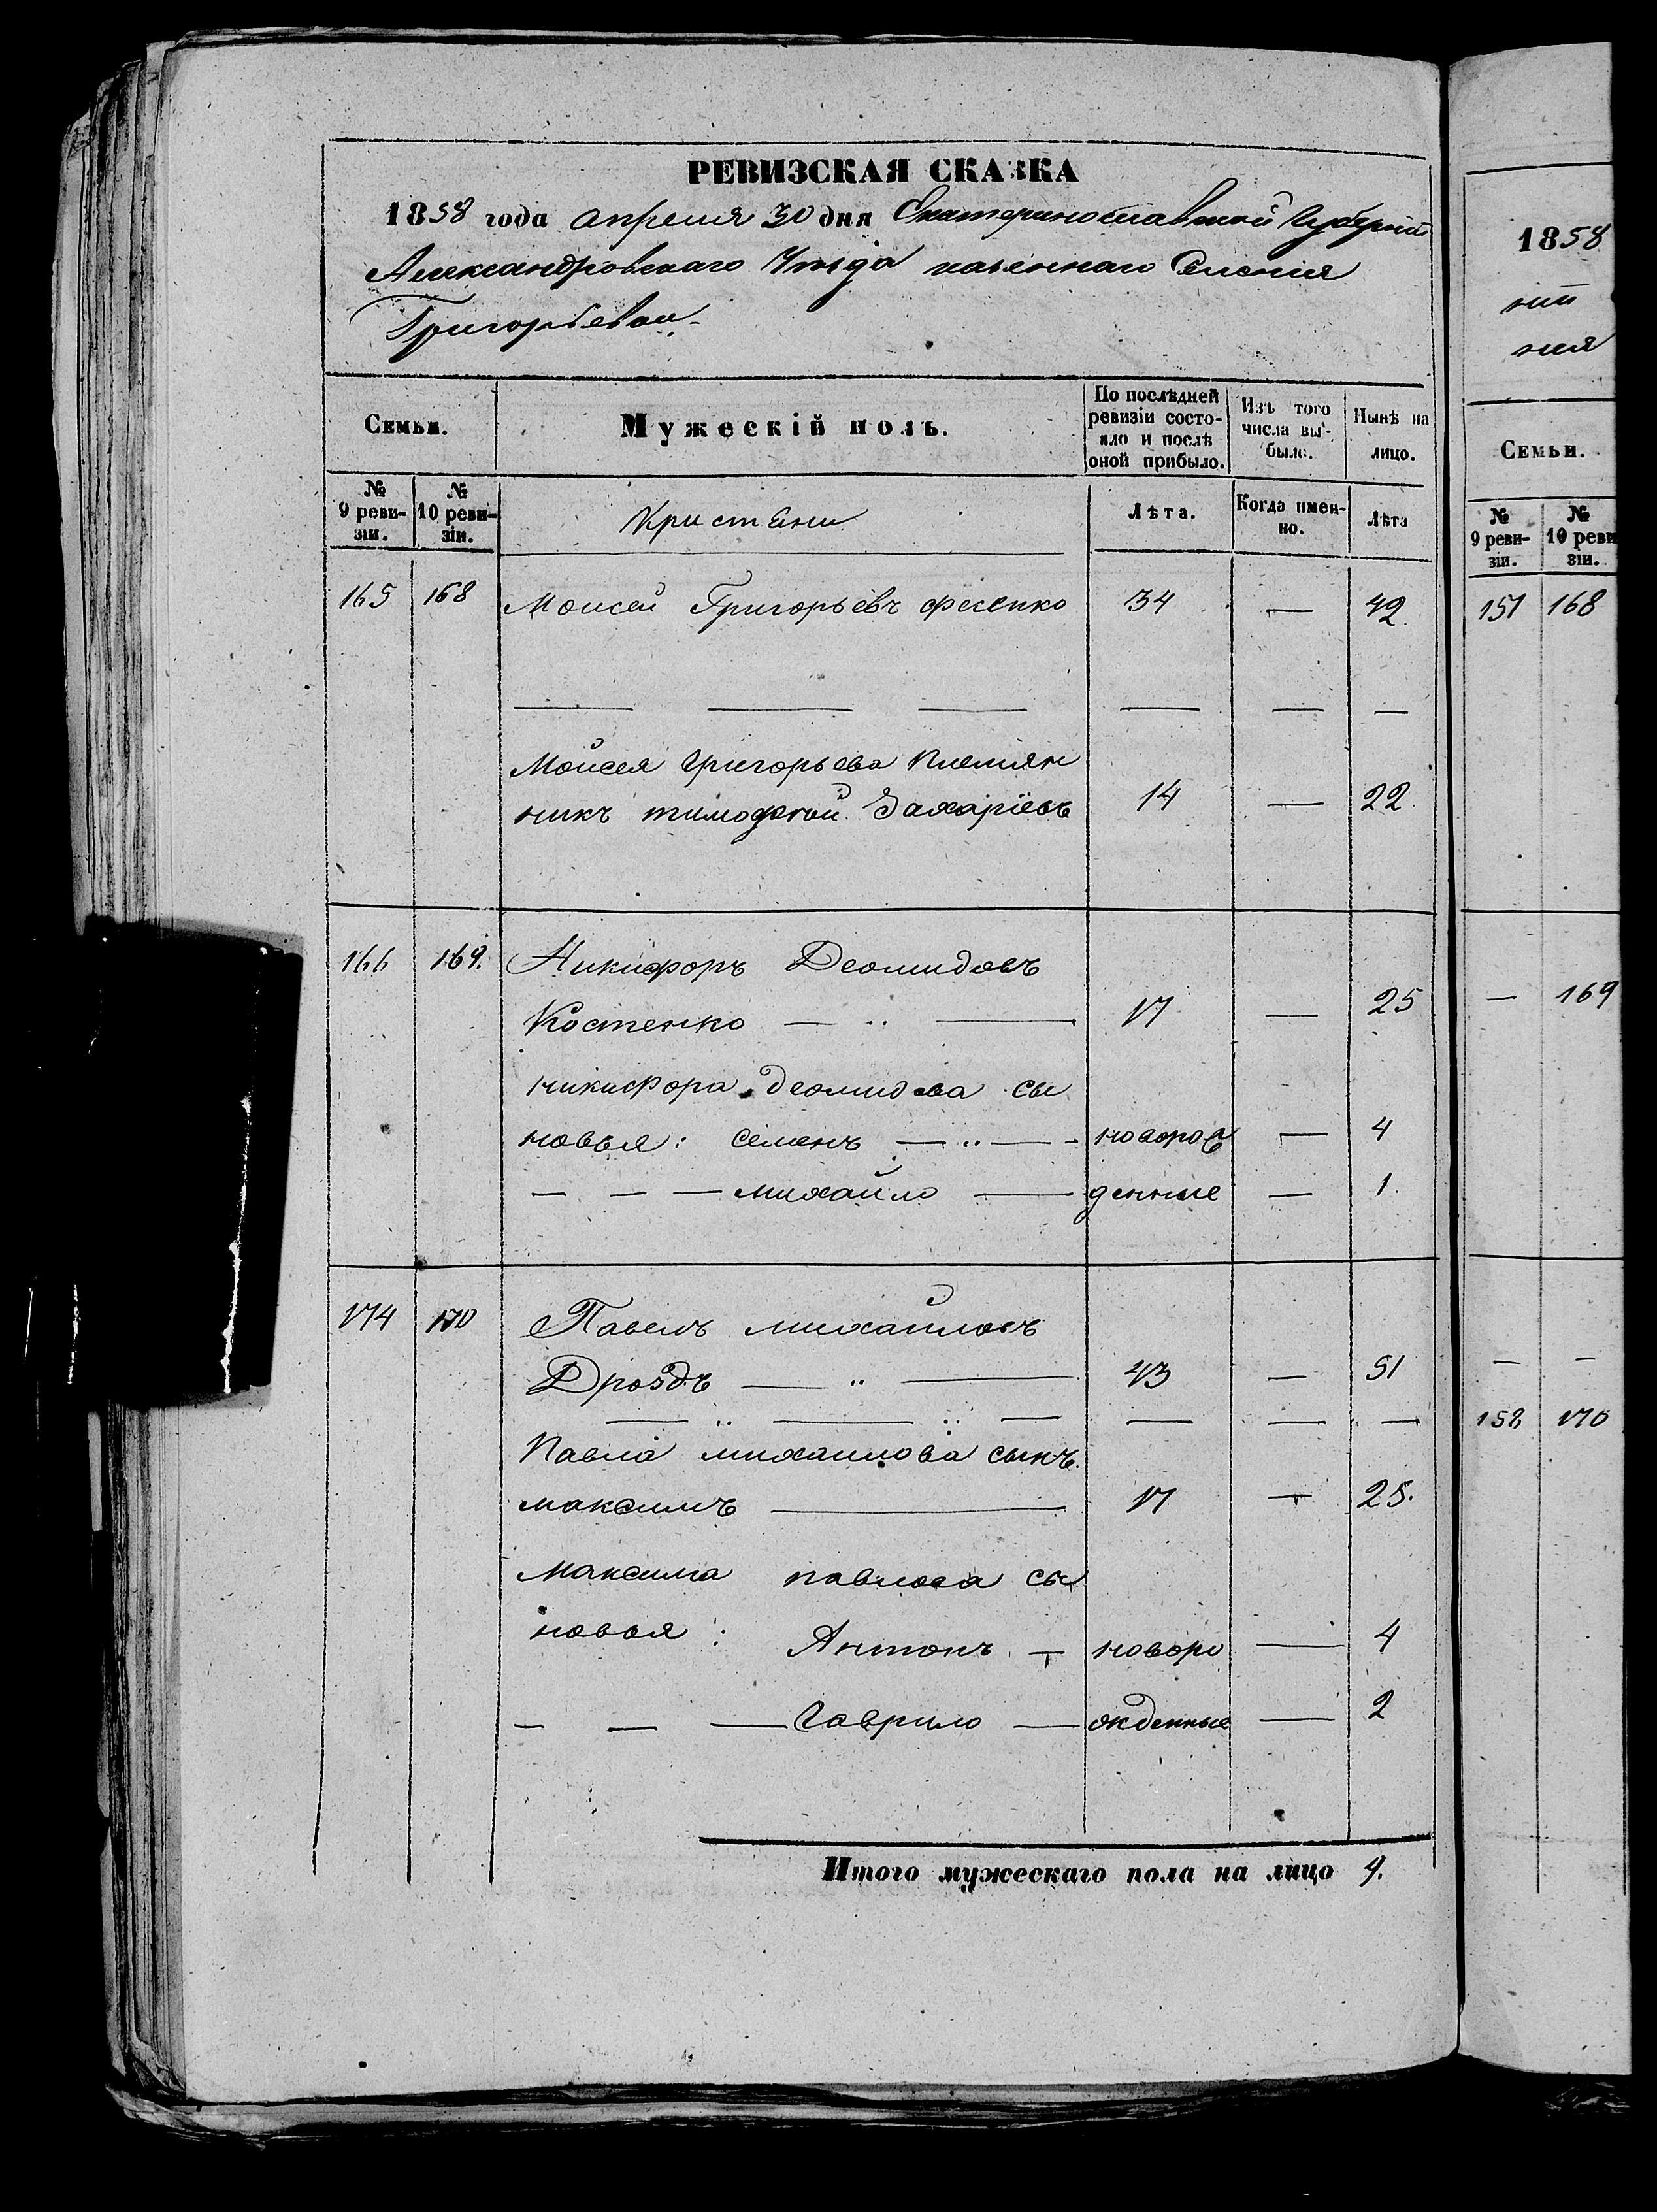 РЕВИЗСКАЯ СКАЗКА
1858 года апреля 30 дня Екатеринославской Губерніи
Александровскаго Уѣзда казеннаго Селенія
Григорьевки.
Семьи. Мужескій полъ. По послѣдней ревизіи состояло и послѣ оной прибыло. Изъ того числа выбыло. Нынѣ на лицо.
№ 9 ревизіи. № 10 ревизіи. Кристяни Лѣта. Когда именно. Лѣта
165 168 Моисей Григорьевъ Фесенко 34 — 42.
— — — — — —
Моисея Григорьева племян
никъ тимофей Захаріевъ 14 — 22.
166 169. Никифоръ Деомидовъ
Костенко — ” — 17 — 25
никифора деомидова сы
новья: семенъ — ” — новорож — 4
— — — михайло — денные — 1.
174 170 Павелъ михайловъ
Дроздъ — ” — 43 — 51
— ” — ” — — — —
Павла михайлова сынъ
максимъ — 17 — 25.
Максима павлова сы
новья: Антонъ — новоро — 4
— — — Гаврило — жденные — 2
Итого мужескаго пола на лицо 9.
1858
ніи
нія
Семьи.
№ 9 ревизіи. № 10 ревизіи.
151 168
— 169
— —
158 170